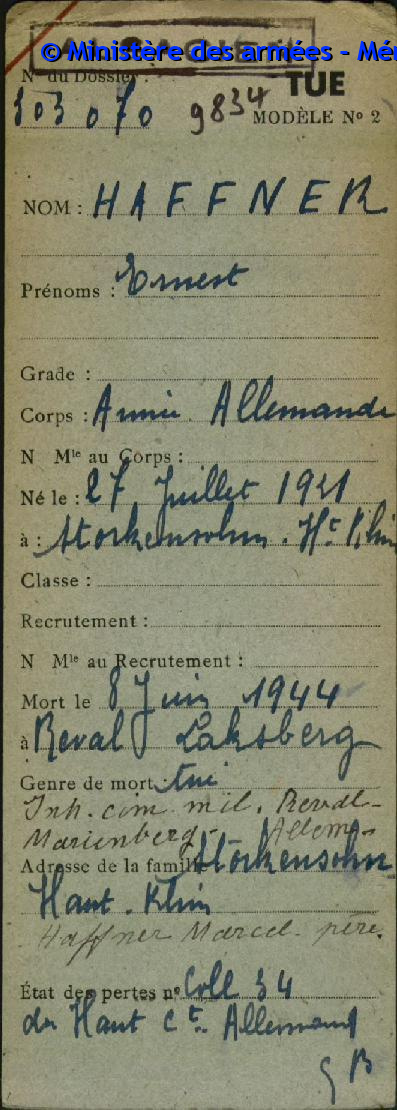 ALSACIEN
© Ministère des armées - Mé
N° du Dossier :
TUE
303070 9834
MODÈLE N° 2
NOM : HAFFNER
Prénoms : Ernest
Grade :
Corps : Armée Allemande
N Mle au Corps :
Né le : 27 Juillet 1921
à : Storkensohn. Ht Rhin
Classe :
Recrutement :
N Mle au Recrutement :
Mort le 8 Juin 1944
à Reval Laksberg
Genre de mort : tué
Inh. cim. mil. Reval-
Marienberg - Allem.
Adresse de la famille Storkensohn
Haut-Rhin
Haffner Marcel père.
État des pertes n° Coll 34
du Haut Ct Allemand